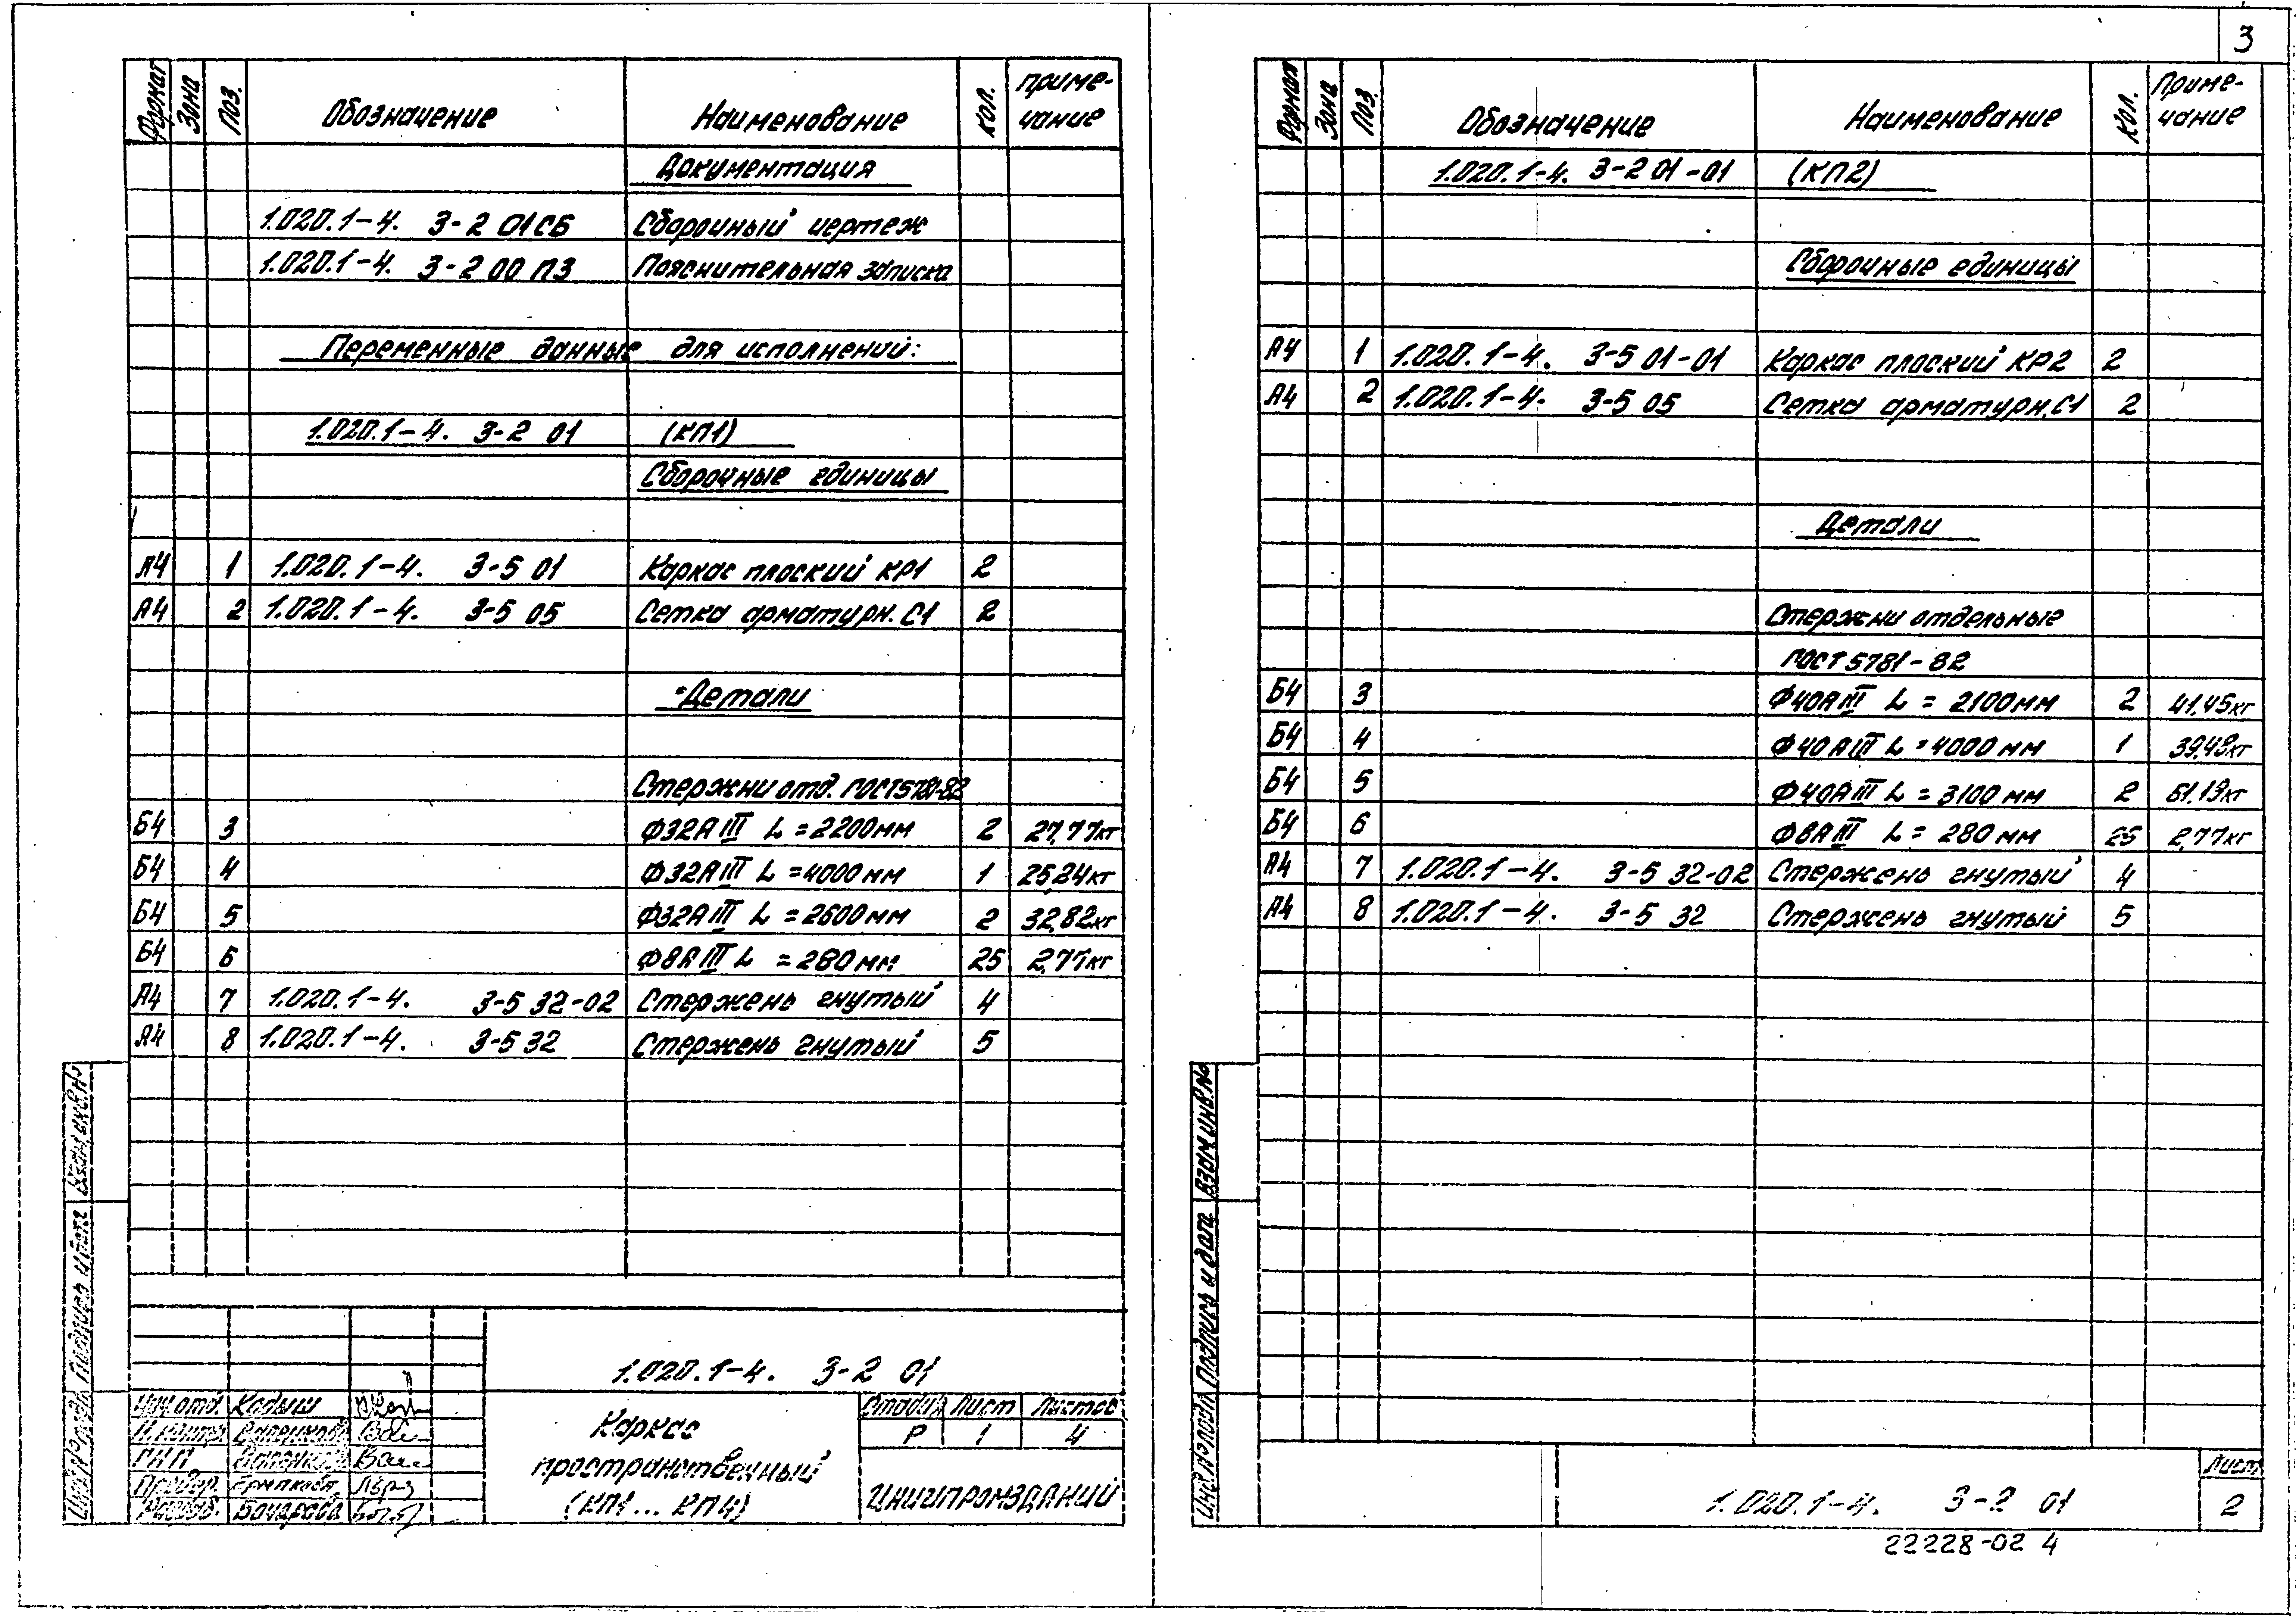 3
Формат Зона Поз. Обозначение Наименование Кол. Приме-
чание
Документация
1.020.1-4. 3-2 01СБ Сборочный чертеж
1.020.1-4. 3-2 00 ПЗ Пояснительная записка
Переменные данные для исполнений:
1.020.1-4. 3-2 01 (КП1)
Сборочные единицы
А4 1 1.020.1-4. 3-5 01 Каркас плоский КР1 2
А4 2 1.020.1-4. 3-5 05 Сетка арматурн. С1 2
Детали
Стержни отд. ГОСТ 5781-82
Б4 3 Ф32АIII L = 2200мм 2 27,77кг
Б4 4 Ф32АIII L = 4000мм 1 25,24кг
Б4 5 Ф32АIII L = 2600мм 2 32,82кг
Б4 6 Ф8АIII L = 280мм 25 2,77кг
А4 7 1.020.1-4. 3-5 32-02 Стержень гнутый 4
А4 8 1.020.1-4. 3-5 32 Стержень гнутый 5
Инв.№ подл. Подпись и дата Взам.инв.№
1.020.1-4. 3-2 01
Нач.отд. Кодыш
Н.контр.
ГИП
Провер.
Разраб. Бочарова
Каркас
пространственный
(КП1...КП4)
Стадия Лист Листов
Р 1 4
ЦНИИПРОМЗДАНИЙ
Формат Зона Поз. Обозначение Наименование Кол. Приме-
чание
1.020.1-4. 3-2 01-01 (КП2)
Сборочные единицы
А4 1 1.020.1-4. 3-5 01-01 Каркас плоский КР2 2
А4 2 1.020.1-4. 3-5 05 Сетка арматурн. С1 2
Детали
Стержни отдельные
ГОСТ 5781-82
Б4 3 Ф40АIII L = 2100мм 2 41,45кг
Б4 4 Ф40АIII L = 4000мм 1 39,48кг
Б4 5 Ф40АIII L = 3100мм 2 61,19кг
Б4 6 Ф8АIII L = 280мм 25 2,77кг
А4 7 1.020.1-4. 3-5 32-02 Стержень гнутый 4
А4 8 1.020.1-4. 3-5 32 Стержень гнутый 5
Инв.№ подл. Подпись и дата Взам инв.№
1.020.1-4. 3-2 01
Лист
2
22228-02 4